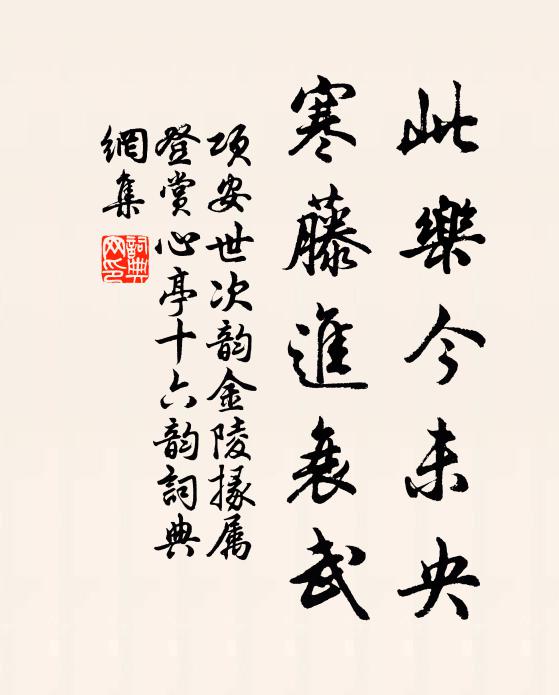 此樂今未央
寒藤進衰武
項安世次韵金陵掾属
登賞心亭十六韵詞典
網集
詞典
网印